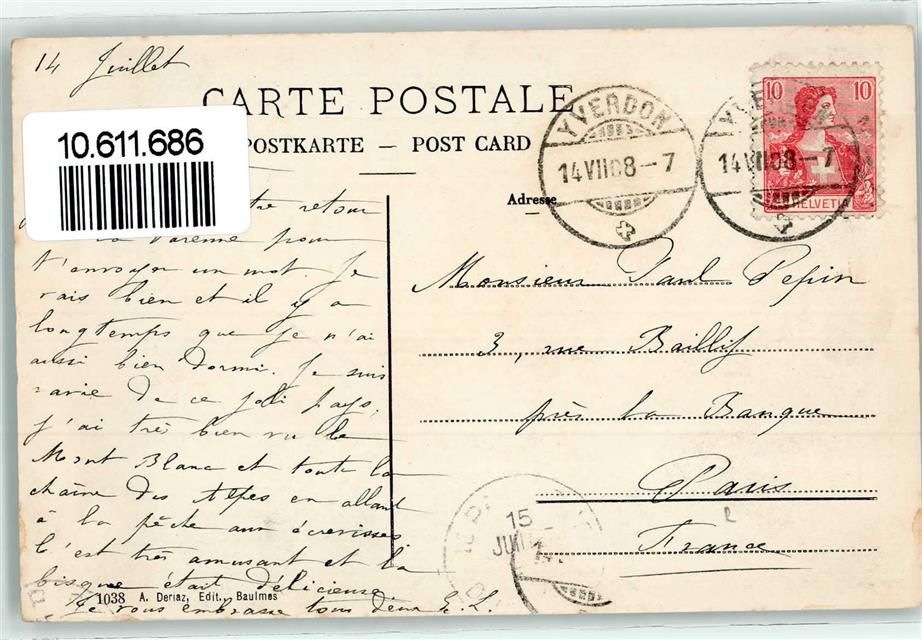 14 Juillet
CARTE POSTALE
POSTKARTE — POST CARD
10.611.686
YVERDON
14 VII 08-7
14 VII 08-7
10 10
HELVETIA
Adresse
retour
pour
t'envoyer un mot. Je
vais bien et il y a
longtemps que je n'ai
aussi bien dormi. Je suis
ravie de ce joli pays,
j'ai très bien vu le
Mont Blanc et toute la
chaîne des Alpes en allant
à la pêche aux écrevisses
c'est très amusant et la
bisque était délicieuse
Je vous embrasse tous deux
Monsieur Paul Pepin
3, rue Baillif
près la Banque
Paris
France
15
JUIL
1038 A. Deriaz, Edit., Baulmes